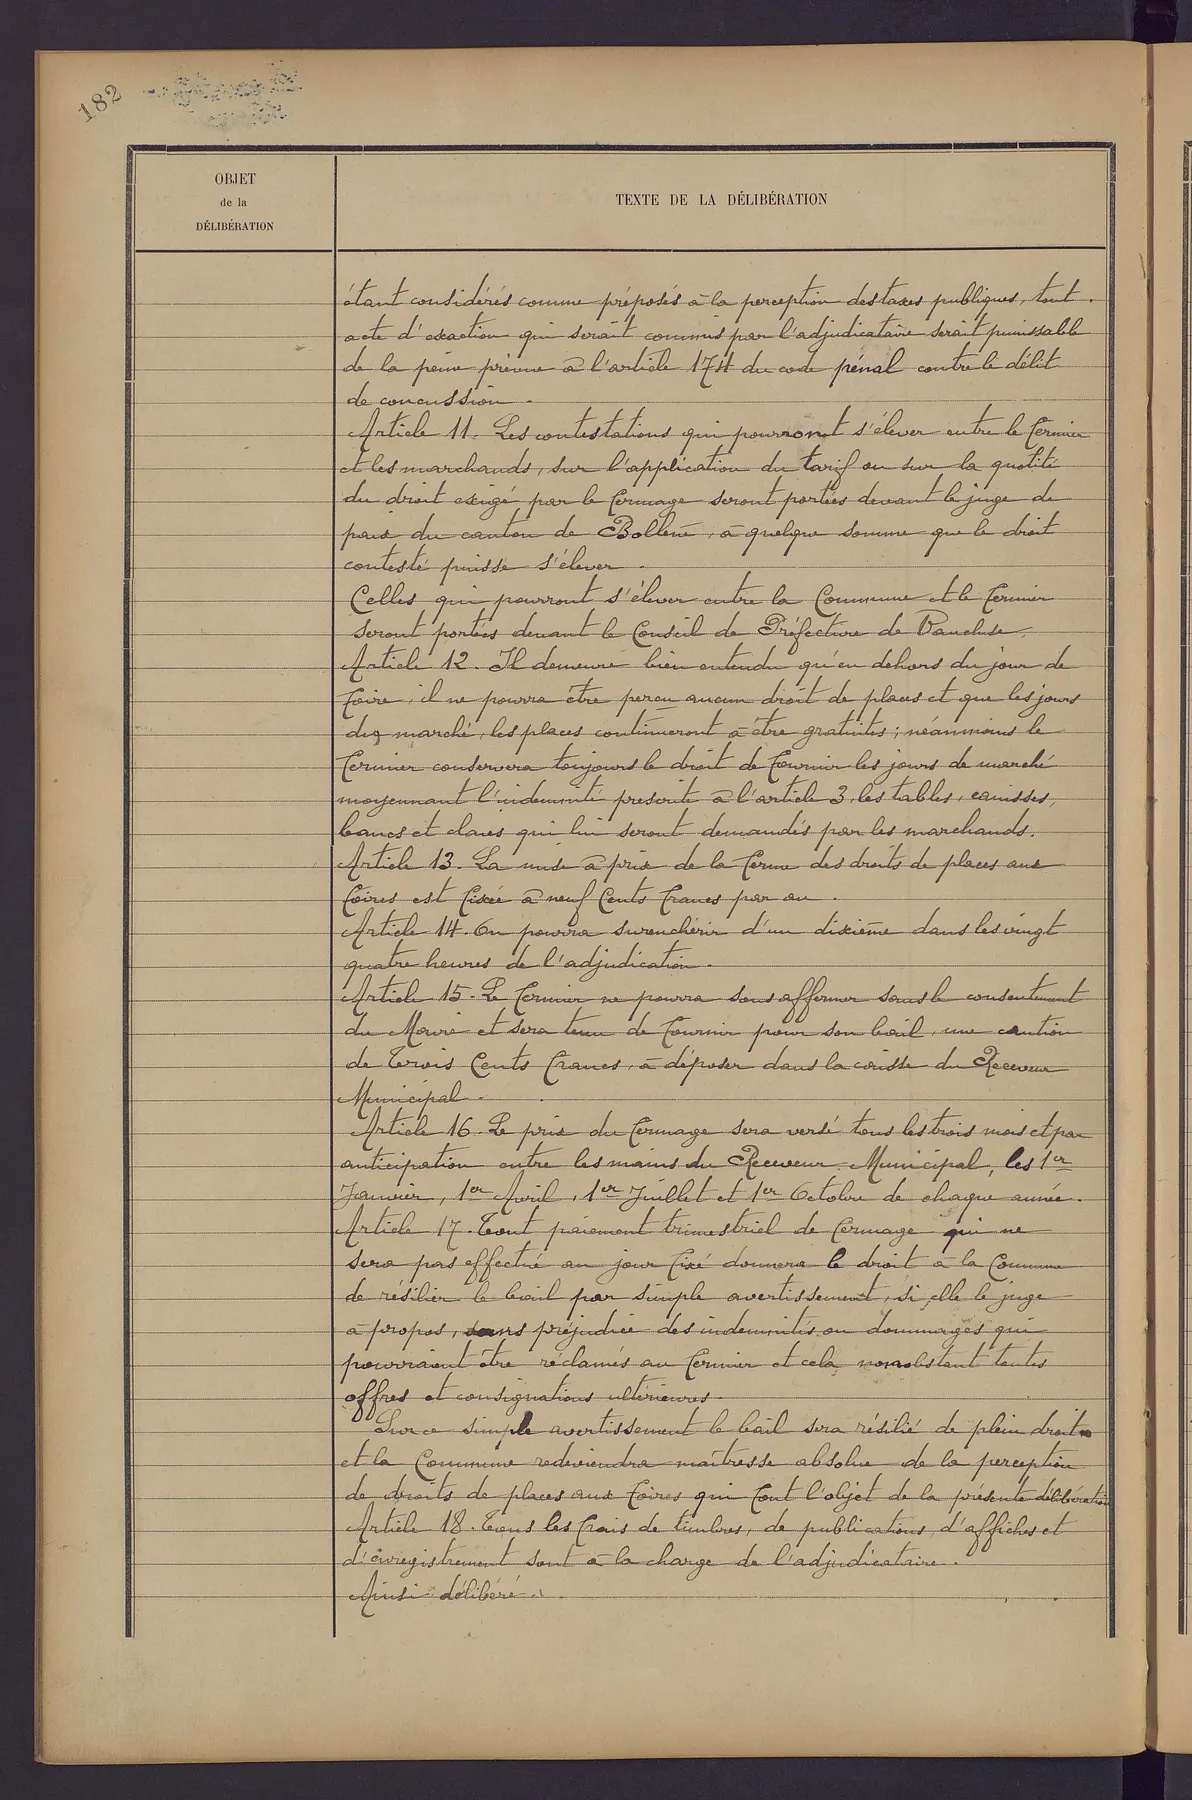 182
OBJET
de la
DÉLIBÉRATION
TEXTE DE LA DÉLIBÉRATION
étant considérés comme préposés à la perception des taxes publiques, tout
acte d'exaction qui serait commis par l'adjudicataire serait punissable
de la peine prévue à l'article 174 du code pénal contre le délit
de concussion.
Article 11. Les contestations qui pourront s'élever entre le Fermier
et les marchands, sur l'application du tarif ou sur la quotité
du droit exigé par le Fermage seront portées devant le juge de
paix du canton de Bollène, à quelque somme que le droit
contesté puisse s'élever.
Celles qui pourront s'élever entre la Commune et le Fermier
seront portées devant le Conseil de Préfecture de Vaucluse.
Article 12. Il demeure bien entendu qu'en dehors du jour de
Foire, il ne pourra être perçu aucun droit de places et que les jours
du marché, les places continueront à être gratuites; néanmoins le
Fermier conservera toujours le droit de Fournir les jours de marché
moyennant l'indemnité prescrite à l'article 3, les tables, canisses,
bancs et claies qui lui seront demandés par les marchands.
Article 13. La mise à prix de la Ferme des droits de places aux
Foires est Fixée à neuf Cents Francs par an.
Article 14. On pourra surenchérir d'un dixième dans les vingt
quatre heures de l'adjudication.
Article 15. Le Fermier ne pourra sous affermer sans le consentement
du Maire et sera tenu de Fournir pour son bail, une caution
de Trois Cents Francs, à déposer dans la caisse du Receveur
Municipal.
Article 16. Le prix du Fermage sera versé tous les trois mois et par
anticipation entre les mains du Receveur Municipal, les 1er
Janvier, 1er Avril, 1er Juillet et 1er Octobre de chaque année.
Article 17. Tout paiement trimestriel de Fermage qui ne
sera pas effectué au jour Fixé donnera le droit à la Commune
de résilier le bail par simple avertissement, si elle le juge
à propos, sans préjudice des indemnités ou dommages qui
pourraient être réclamés au Fermier et cela nonobstant toutes
offres et consignations ultérieures.
Sur ce simple avertissement le bail sera résilié de plein droit
et la Commune redeviendra maîtresse absolue de la perception
de droits de places aux Foires qui Font l'objet de la présente délibération
Article 18. Tous les Frais de timbres, de publications, d'affiches et
d'enregistrement sont à la charge de l'adjudicataire.
Ainsi délibéré.